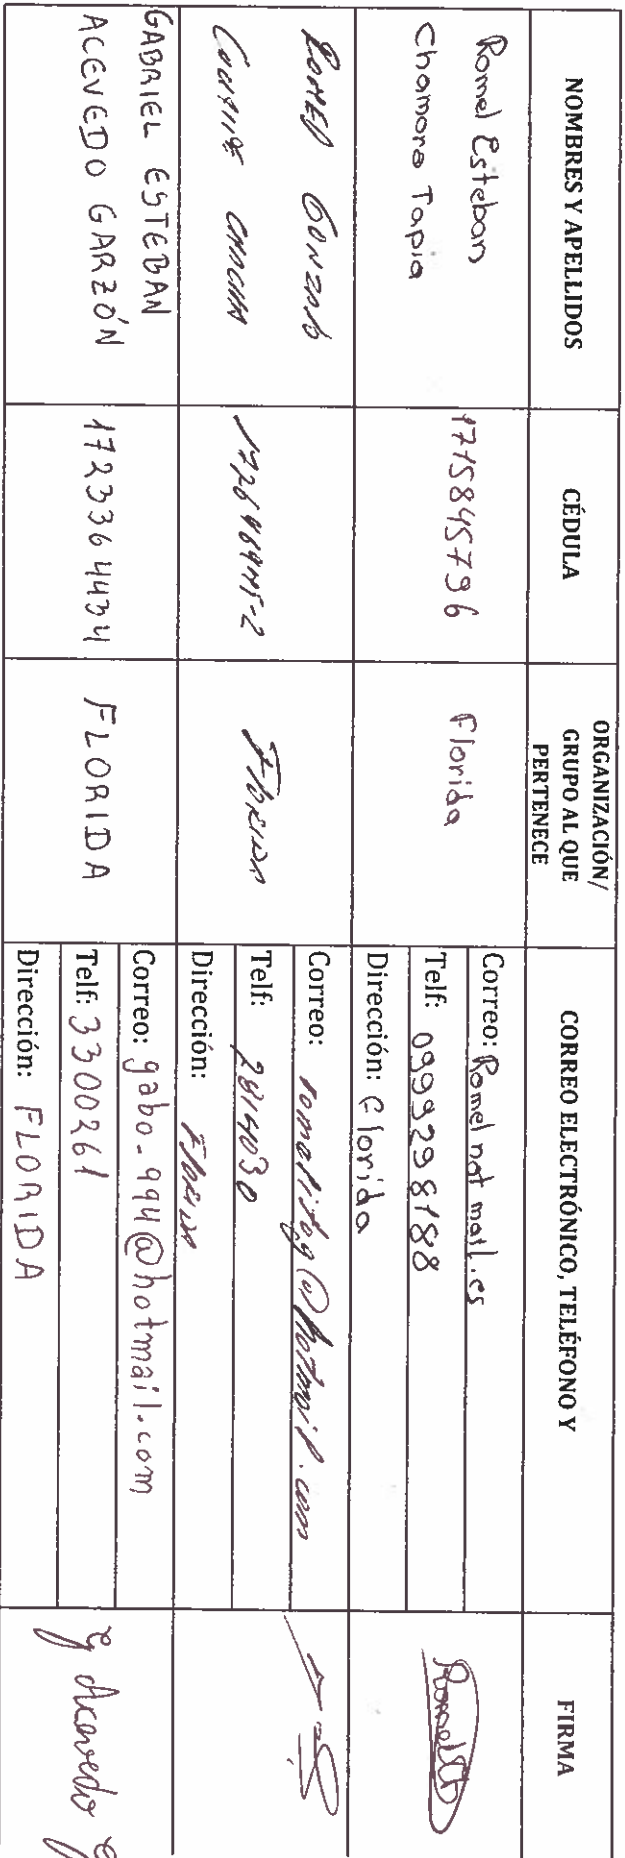 NOMBRES Y APELLIDOS
CÉDULA
ORGANIZACIÓN/
GRUPO AL QUE
PERTENECE
CORREO ELECTRÓNICO, TELÉFONO Y
FIRMA
Romel Esteban
Chamoro Tapia
1715845796
Florida
Correo: Romel not mail.es
Telf: 0999298188
Dirección: Florida
Romel
ROMEO GONZALO
Florida
Correo: romelitogg@hotmail.com
Telf: 2814030
Dirección: Florida
GABRIEL ESTEBAN
ACEVEDO GARZÓN
1723364434
FLORIDA
Correo: gabo-994@hotmail.com
Telf: 3300261
Dirección: FLORIDA
G Acevedo G